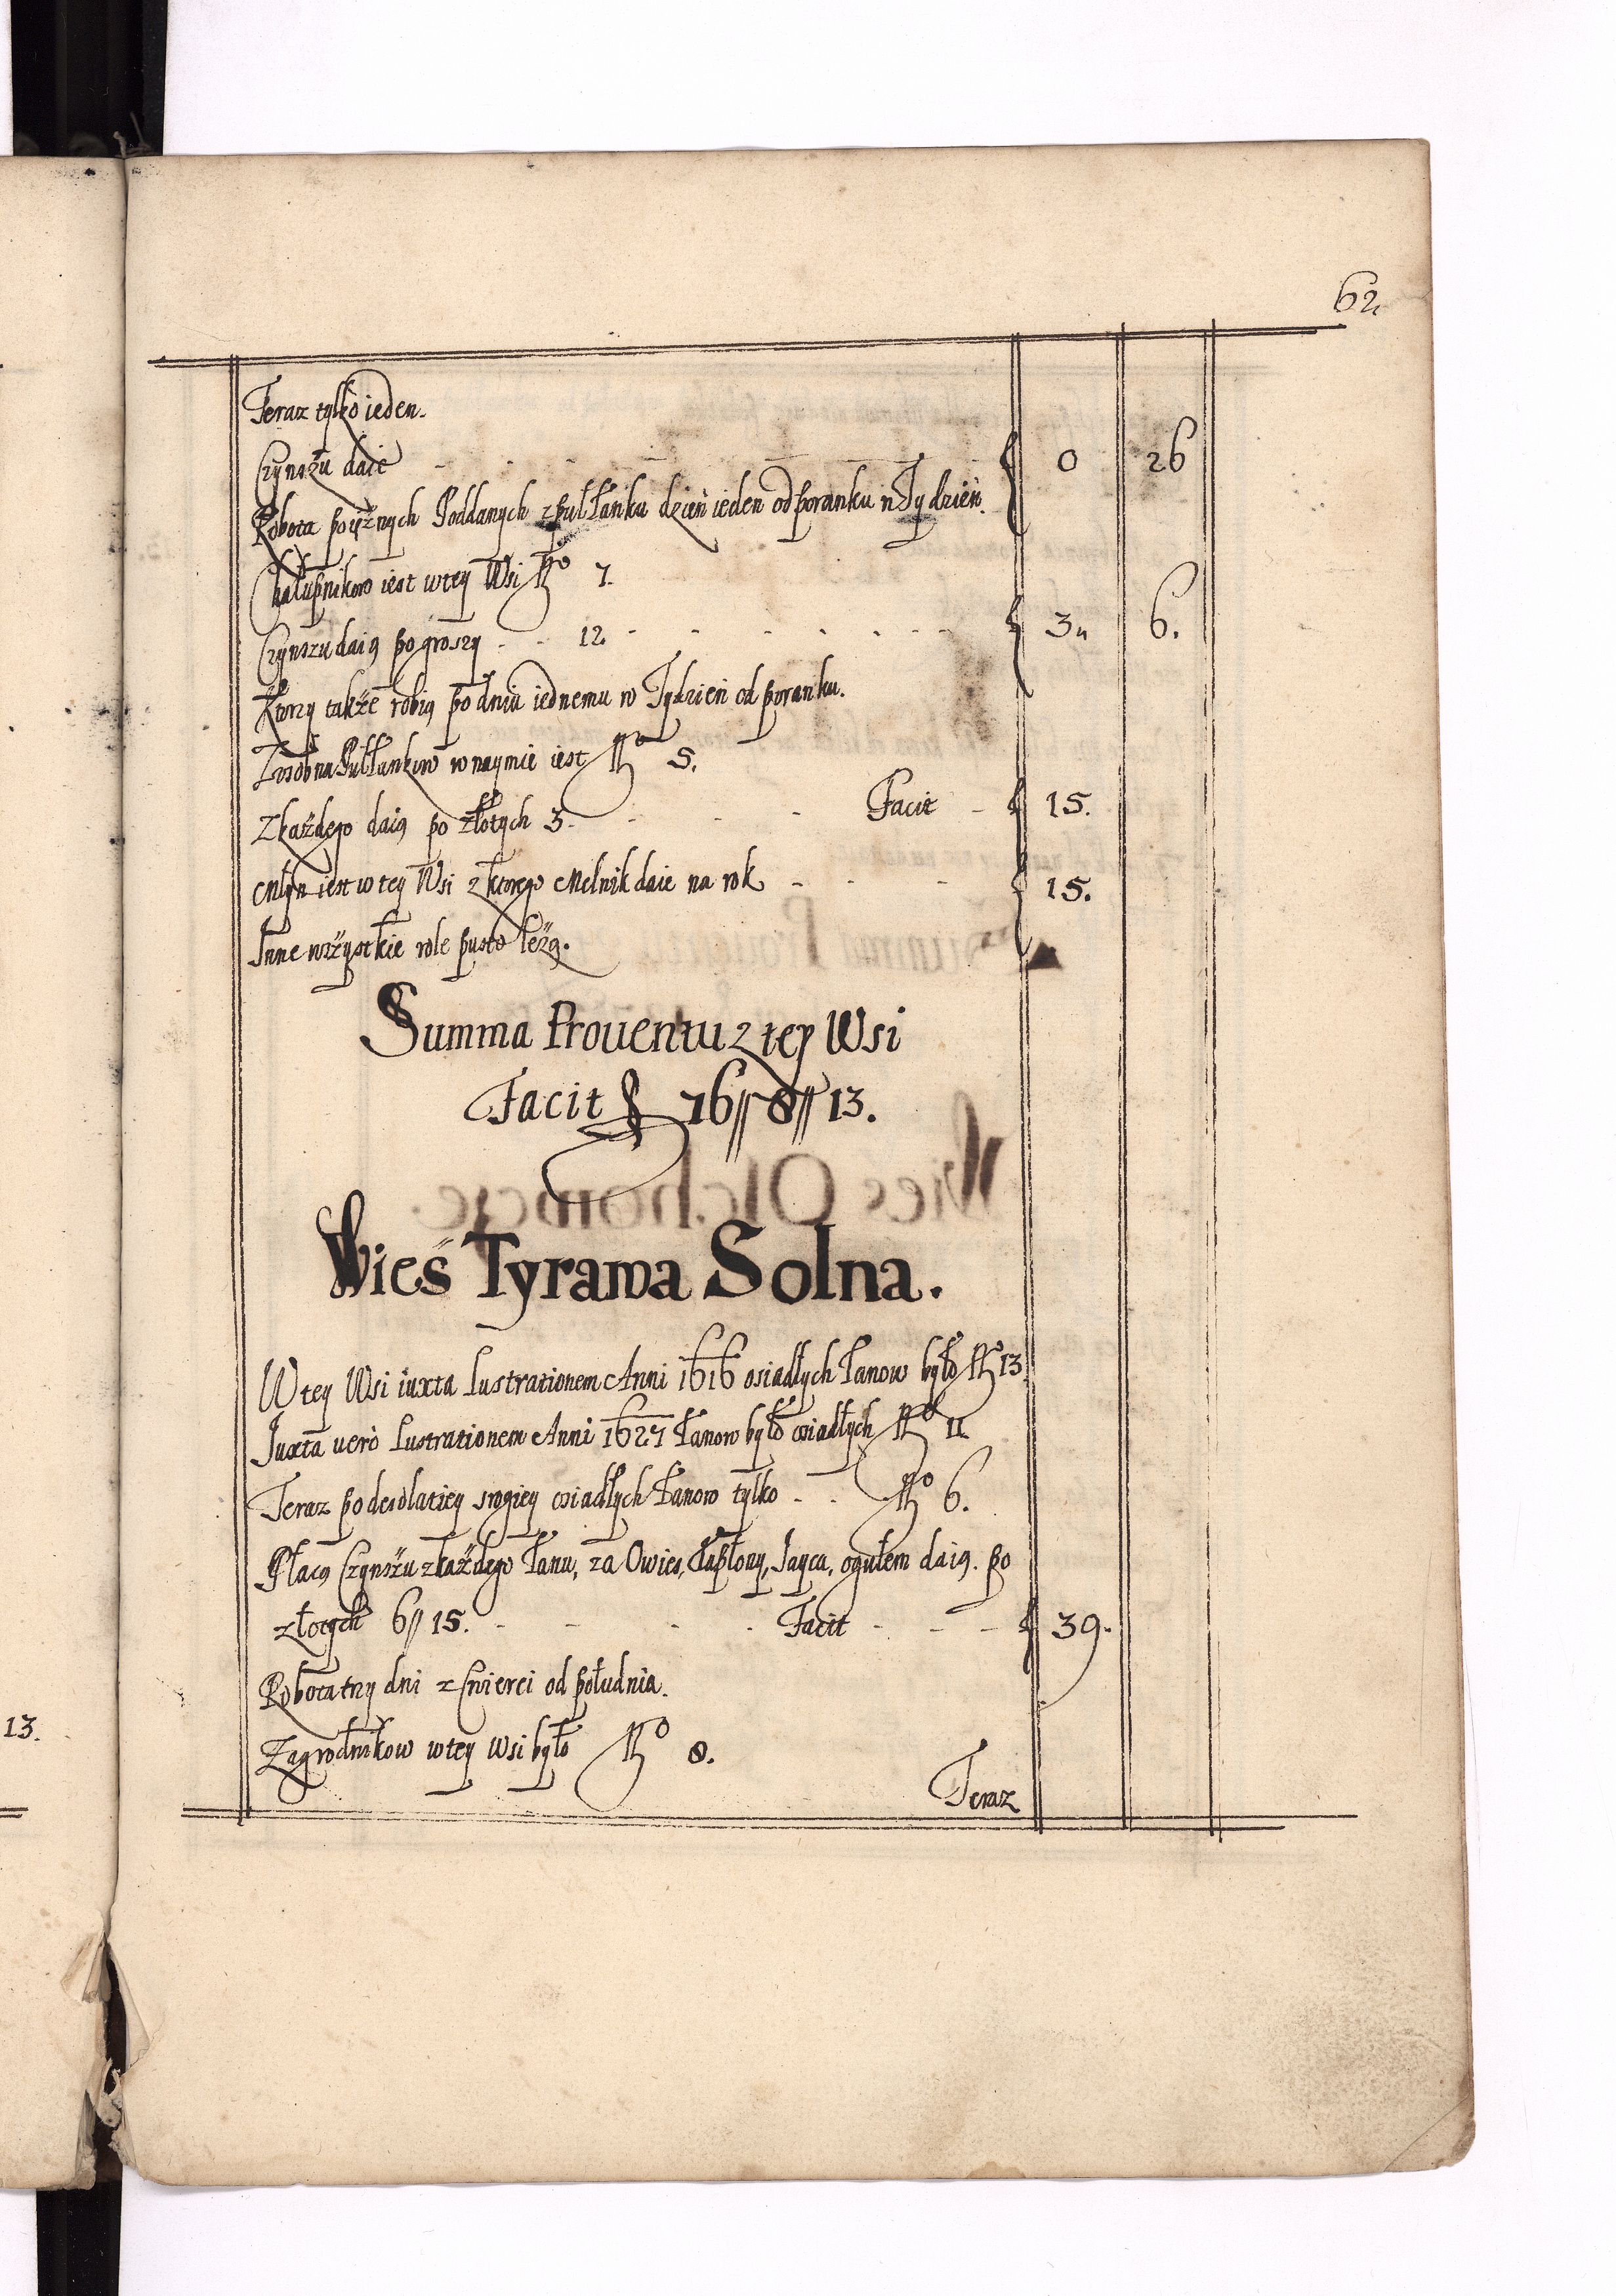 62
Teraz tylko ieden.
Czynszu daie - - - - - 0 26
Robota powyżnych Poddanych z puł Łanku dzień ieden od poranku w Tydzień.
Chałupnikow iest w tey Wsi Nro 7.
Czynszu daią po groszy - - 12 - - - - - - - 3 6.
Ktorzy także robią po dniu iednemu w Tydzień od poranku.
Zosobna Puł Łankow w naymie iest Nro 5.
Z każdego daią po złotych 3 - - - - Facit - 15.
Młyn iest w tey Wsi z ktorego Melnik daie na rok - - - 15.
Inne wszystkie role pusto leżą.
Summa Prouentu z tey Wsi
Facit f 76 // 8 // 13.
Wieś Tyrawa Solna.
W tey Wsi iuxta Lustrationem Anni 1616 osiadłych Łanow było Nro 13.
Juxta verò Lustrationem Anni 1627 Łanow było osiadłych Nro 11.
Teraz po desolatiey srogiey osiadłych Łanow tylko - - Nro 6.
Płacą Czynszu z każdego Łanu, za Owies, Kapłony, Jayca, ogułem daią. po
złotych 6 // 15. - - - - Facit - - - 39.
Robota trzy dni z Cwierci od południa.
Zagrodnikow w tey Wsi było Nro 8.
Teraz
13.